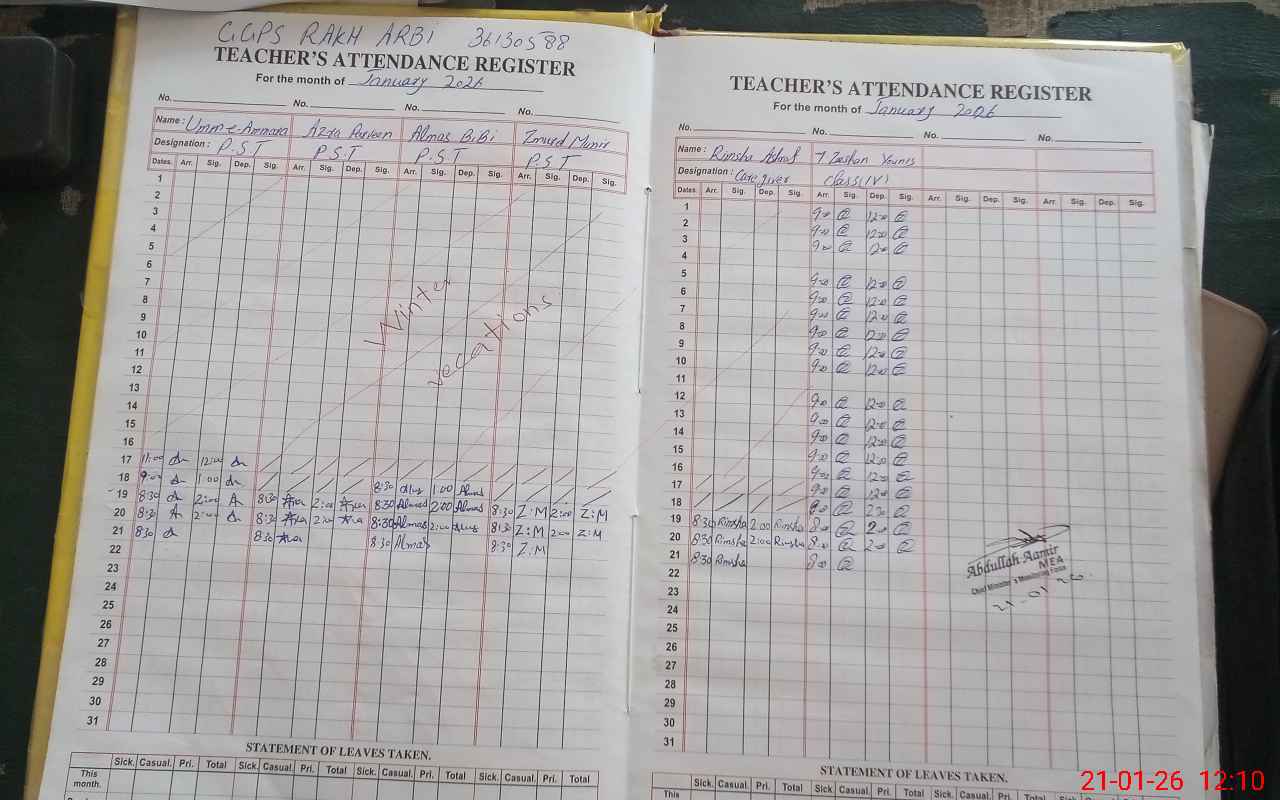 GGPS RAKH ARBI 36130588
TEACHER'S ATTENDANCE REGISTER
For the month of January 2026
No. No. No. No.
Name : Umm-e-Ammara Azra Parveen Almas BiBi Zmurd Munir
Designation : P.S.T P.S.T P.S.T P.S.T
Dates. Arr. Sig. Dep. Sig. Arr. Sig. Dep. Sig. Arr. Sig. Dep. Sig. Arr. Sig. Dep. Sig.
1
2
3
4
5
6
7
8
9
10
11
12
13
14
15
16
Winter
vecations
17 11:00 12:00
18 9:00 1:00 8:30 Almas 1:00 Almas
19 8:30 2:00 8:30 2:00 8:30 Almas 2:00 Almas 8:30 Z:M 2:00 Z:M
20 8:30 2:00 8:30 2:00 8:30 Almas 2:00 8:30 Z:M 2:00 Z:M
21 8:30 8:30 8:30 Almas 8:30 Z:M
22
23
24
25
26
27
28
29
30
31
STATEMENT OF LEAVES TAKEN.
Sick. Casual. Pri. Total Sick. Casual. Pri. Total Sick. Casual. Pri. Total Sick. Casual. Pri. Total
This month.
TEACHER'S ATTENDANCE REGISTER
For the month of January 2026
No. No. No. No.
Name : Rimsha Ashraf Zeshan Younis
Designation : Care giver class(IV)
Dates. Arr. Sig. Dep. Sig. Arr. Sig. Dep. Sig. Arr. Sig. Dep. Sig. Arr. Sig. Dep. Sig.
1 9:00 12:00
2 9:00 12:00
3 9:00 12:00
4
5 9:00 12:00
6 9:00 12:00
7 9:00 12:00
8 9:00 12:00
9 9:00 12:00
10 9:00 12:00
11
12 9:00 12:00
13 9:00 12:00
14 9:00 12:00
15 9:00 12:00
16 9:00 12:00
17 9:00 12:00
18
19 8:30 Rimsha 2:00 Rimsha 8:00 2:00
20 8:30 Rimsha 2:00 Rimsha 8:00 2:00
21 8:30 Rimsha 8:00
22
23
24
25
26
27
28
29
30
31
Abdullah Aamir
MEA
Chief Minister's Monitoring Force
21-01-26
STATEMENT OF LEAVES TAKEN.
Sick. Casual. Pri. Total Sick. Casual. Pri. Total Sick. Casual. Pri. Total Sick. Casual. Pri. Total
This
21-01-26 12:10